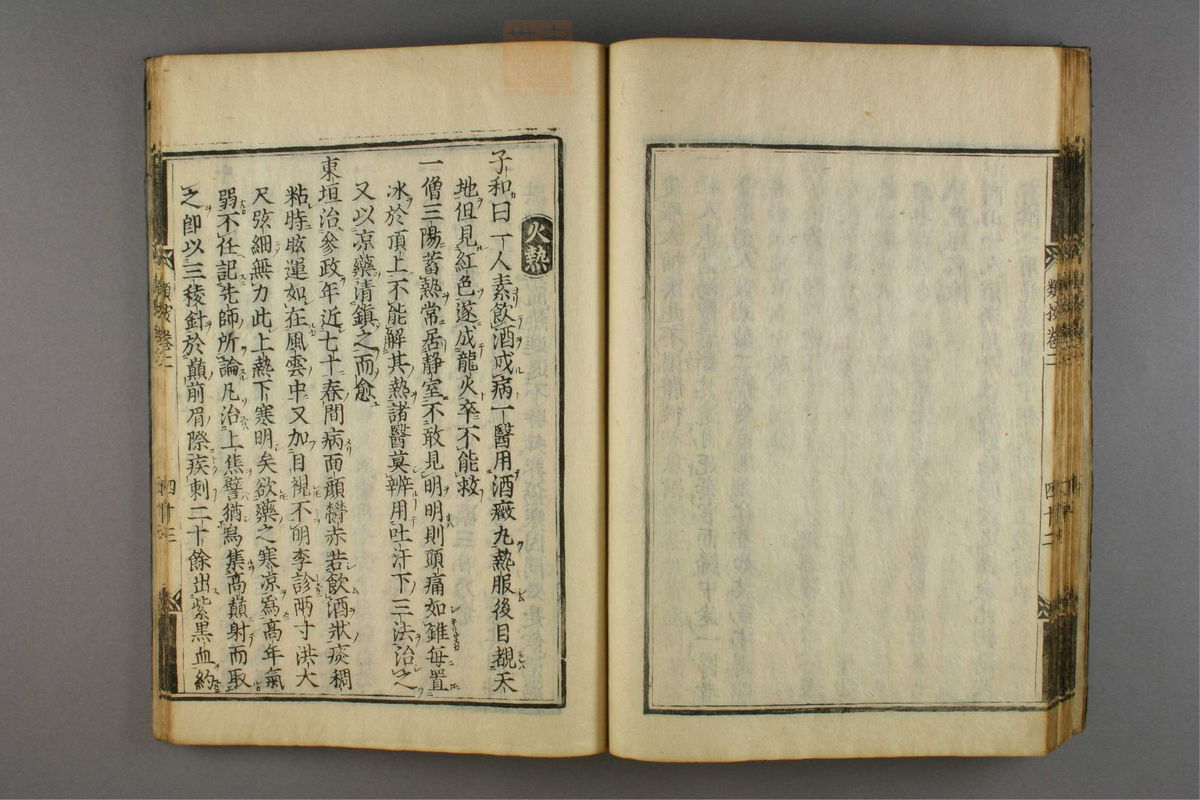 類按卷二
四十二
火熱
子和曰一人素飲酒成病一醫用酒癥丸熱服後目覩天
地但見紅色遂成龍火卒不能救
一僧三陽蓄熱常居靜室不敢見明明則頭痛如錐每置
冰於頂上不能解其熱諸醫莫辨用吐汗下三法治之
又以凉藥清鎮之而愈
東垣治參政年近七十春間病面顔鬱赤若飲酒狀痰稠
粘時眩運如在風雲中又加目視不明李診兩寸洪大
尺弦細無力此上熱下寒明矣欲藥之寒凉爲高年氣
弱不任記先師所論凡治上焦譬猶鳥集高巔射而取
之即以三稜針於巔前眉際疾刺二十餘出紫黑血約